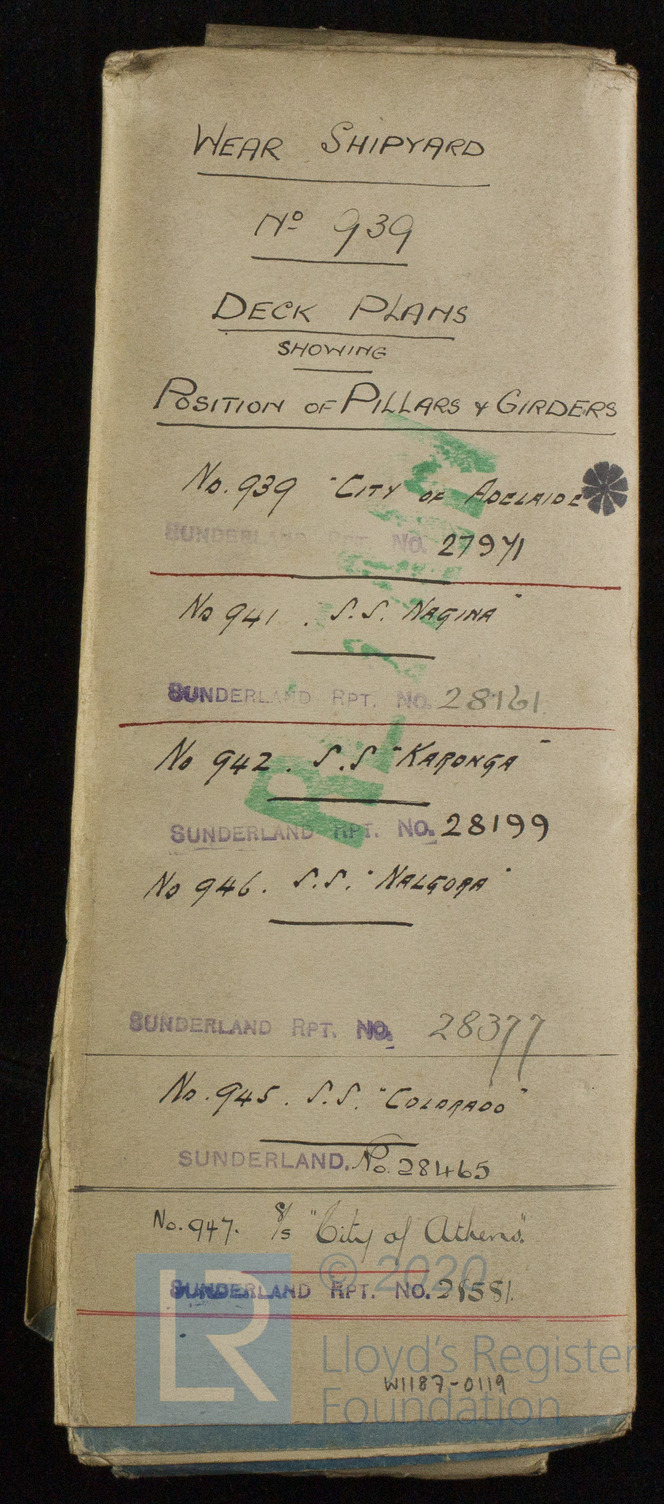 WEAR SHIPYARD
Nº 939
DECK PLANS
SHOWING
POSITION OF PILLARS & GIRDERS
No. 939 "CITY OF ADELAIDE"
SUNDERLAND RPT. NO. 27971
No 941 . S.S. NAGINA"
SUNDERLAND RPT. NO. 28161
No 942 . S.S "KARONGA"
SUNDERLAND RPT. NO. 28199
No 946 . S.S. "NALGORA"
SUNDERLAND RPT. NO. 28377
No. 945 . S.S. "COLORADO"
SUNDERLAND. No. 28465
No. 947. S/S "City of Athens".
© 2020
SUNDERLAND RPT. NO. 28581.
LR
Lloyd's Register
W1187-0119
Foundation